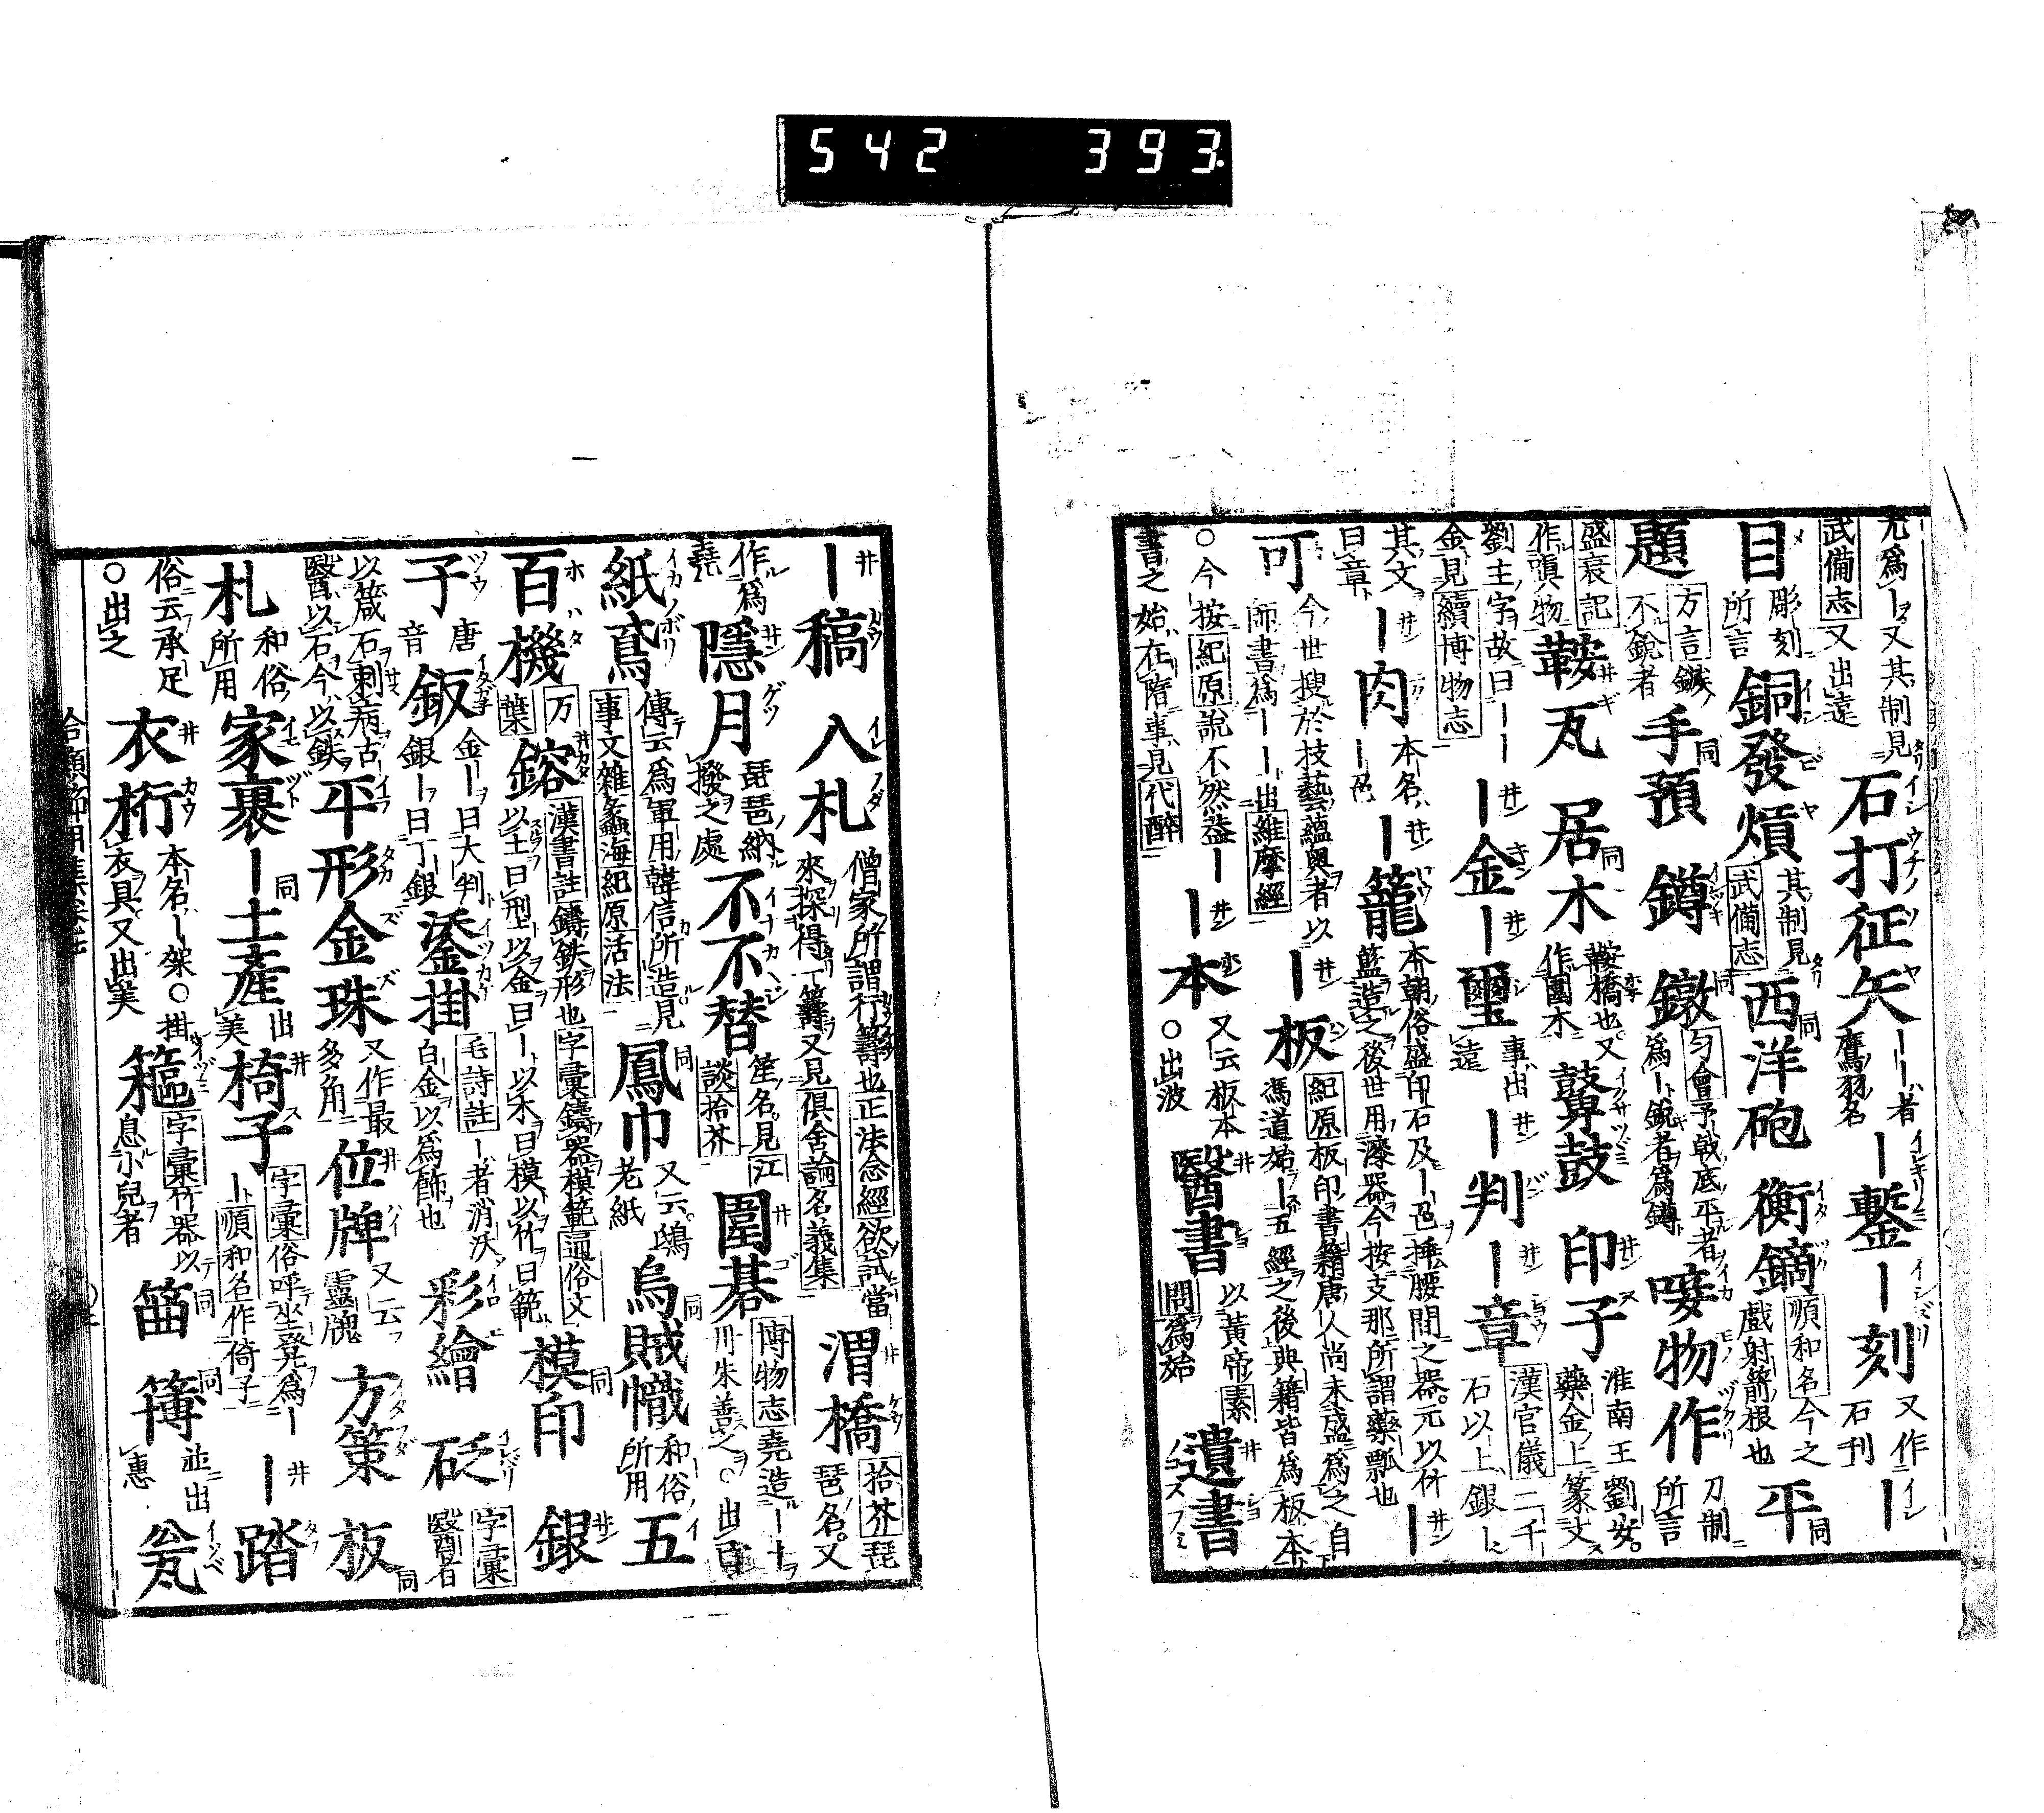 542 393.
尤爲ー又其制見
武備志又出遠
石打征矢ーー者
鷹羽名
ー鏨ー刻又作ー
石刊
目彫刻
所言
銅發熕其制見
武備志
西洋砲
衡鏑順和名今之
戲射箭根也
平
題方言鏃
不銳者
手預
鐏
鐓匀會予戟底平者
爲ー銳者爲鐏
唼物作刀制
所言
盛衰記
作嗔物
鞍瓦
居木鞍橋也又
作圍木
鼓
印子淮南王劉安
藥金上篆文
劉主字故曰ーー
金見續博物志
ー金ー璽事出
遠
ー判ー章漢官儀二千
石以上銀ー
其文
曰章
ー肉本名
ー籠本朝俗盛印石及ー
籃造之後世用漆器今按支那所謂藥瓢也
ー
可今世搜於技藝蘊奧者以
師書爲ーー出維摩經
ー板紀原板印書籍唐人尚未盛爲之自
馮道始ー五經之後典籍皆爲板本
○今按紀原說不然盖ー
書之始在隋事見代醉
ー本又云板本
○出波
醫書以黃帝素
問爲始
遺書
ー稿
入札僧家所謂行籌也正法念經欲試當
來探得一籌又見俱舍論名義集
渭橋拾芥琵
琶名又
作爲
堯
隱月琵琶納
撥之處
不不替笙名見江
談拾芥
圍碁博物志堯造ー十
丹朱善之○出白
紙鳶傳云爲軍用韓信所造見
事文雜纂蠡海紀原活法
鳳巾又云鴟
老紙
烏賊幟和俗
所用
五
百機万
葉
鎔漢書註鑄鉄形也字彙鑄器模範通俗文
以土曰型以金曰ー以木曰模以竹曰範
模印
銀
子唐
音
鈑金ー曰大判
銀ー曰丁銀
鋈掛毛詩註ー者消沃
白金以爲飾也
彩繪
砭字彙
醫者
以箴石刺病古
醫以石今以鉄
平形金珠又作最
多角
位牌又云
靈牌
方策
板
札和俗
所用
家裹
ー土產出
美
椅子字彙俗呼坐凳爲ー
ー順和名作倚子
ー踏
俗云承足
○出之
衣桁本名ー架○掛
衣具又出美
䈕字彙竹器以
息小兒者
䈂
簿並出
惠
瓫
合類節用集